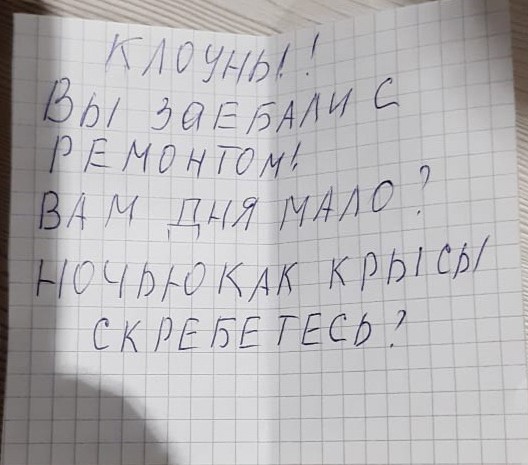 КЛОУНЫ!!
ВЫ ЗАЕБАЛИ С
РЕМОНТОМ!
ВАМ ДНЯ МАЛО?
НОЧЬЮ КАК КРЫСЫ
СКРЕБЕТЕСЬ?